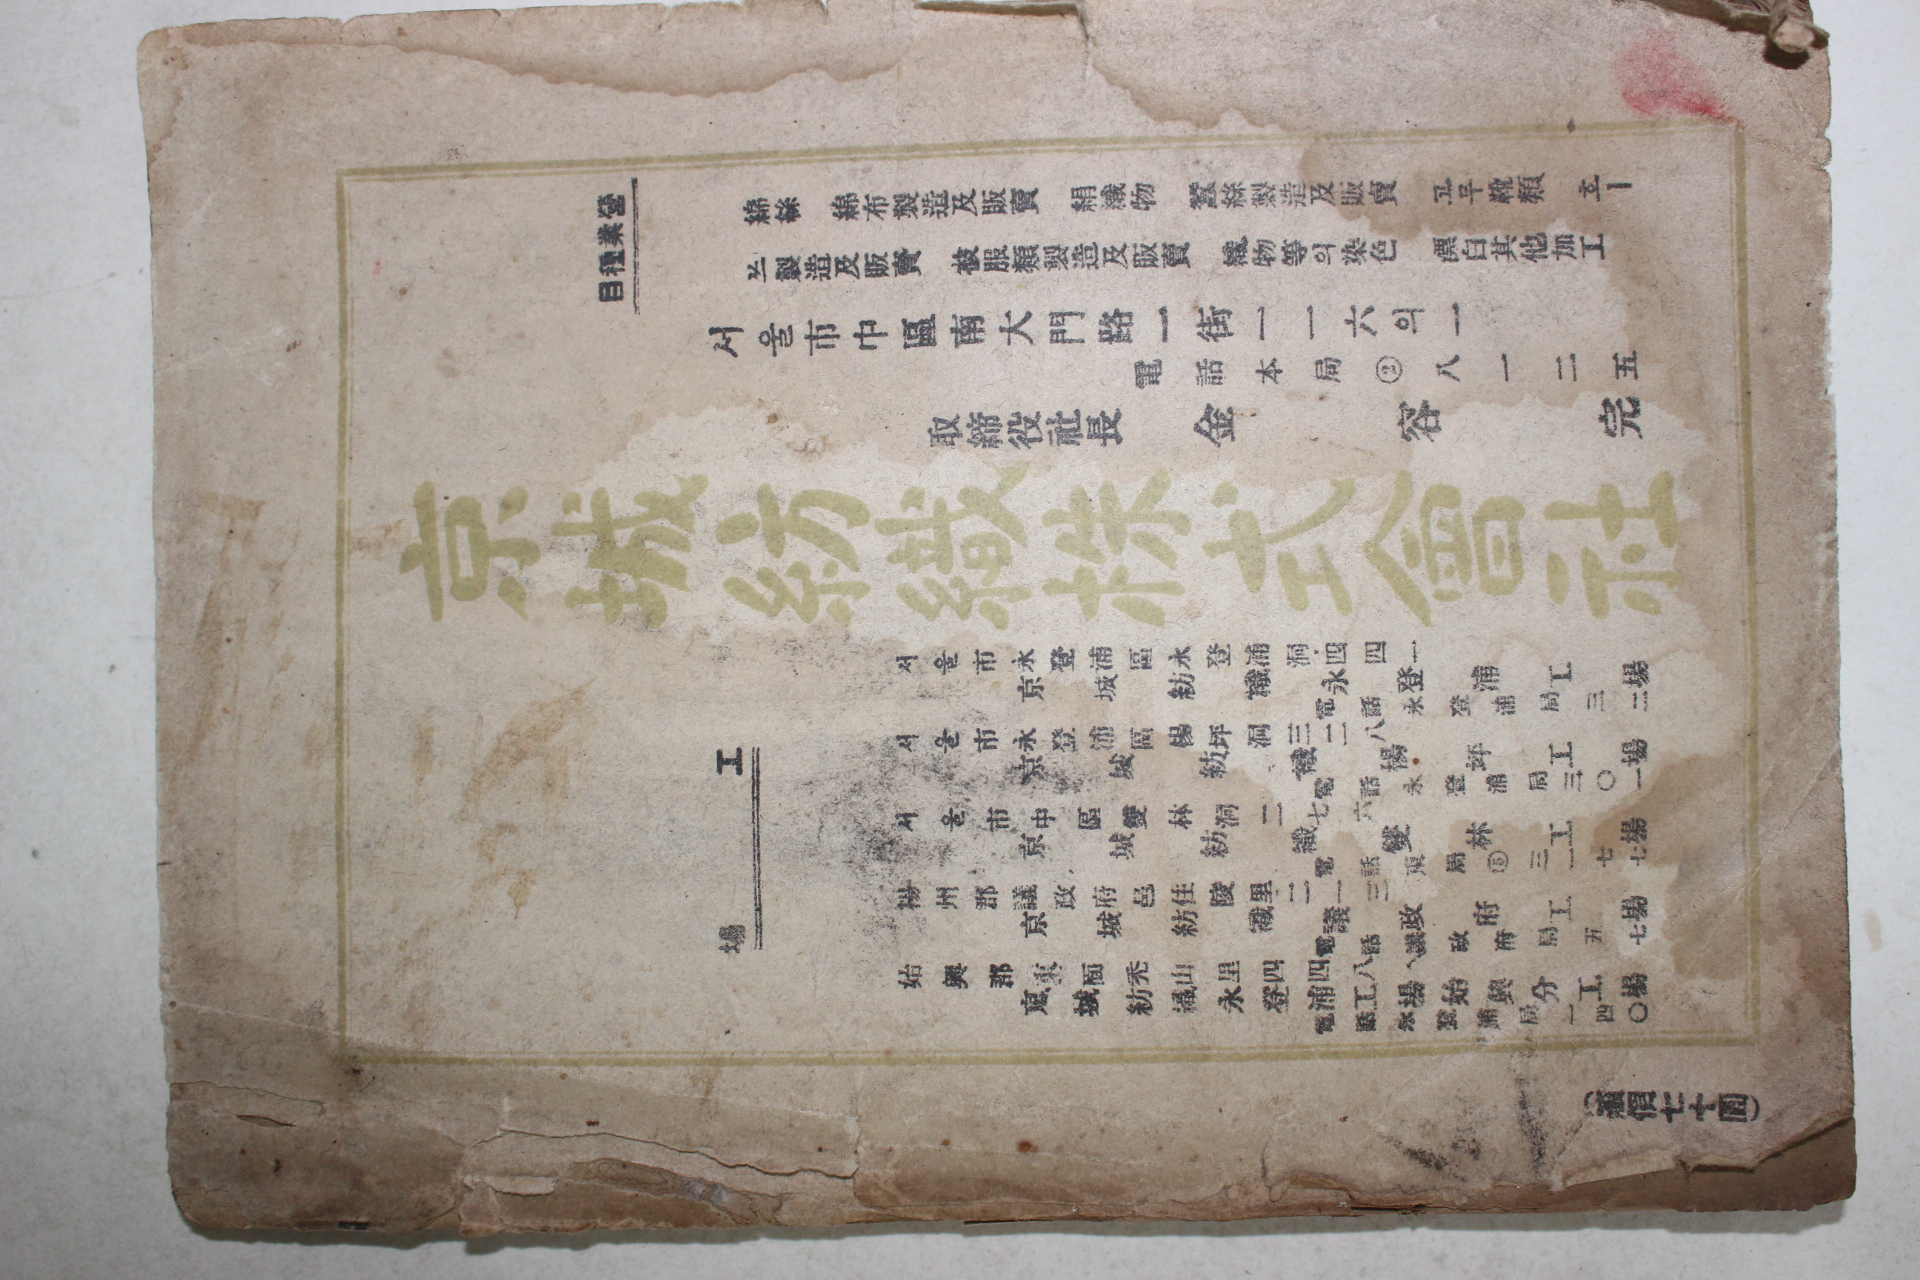 營業種目
綿絲 綿布製造及販賣 絹織物 蠶絲製造及販賣 고무靴類 호ー
쓰製造及販賣 被服類製造及販賣 織物等의染色 漂白其他加工
서울市中區南大門路一街一一六의一
電話本局②八一二五
取締役社長 金容完
京城紡織株式會社
工場
서울市永登浦區永登浦洞四四一
京城紡織永登浦工場
電話永登浦局三二
서울市永登浦區楊坪洞三二八
京城紡織楊坪工場
電話永登浦局三〇一
서울市中區雙林洞二七六
京城紡織雙林工場
電話東局⑤三一七七
楊州郡議政府邑佳陵里二一三
京城紡織議政府工場
電話議政府局五七
始興郡東面禿山里四四八
京城紡織永登浦工場始興分工場
電話永登浦局一四〇
價七十圓